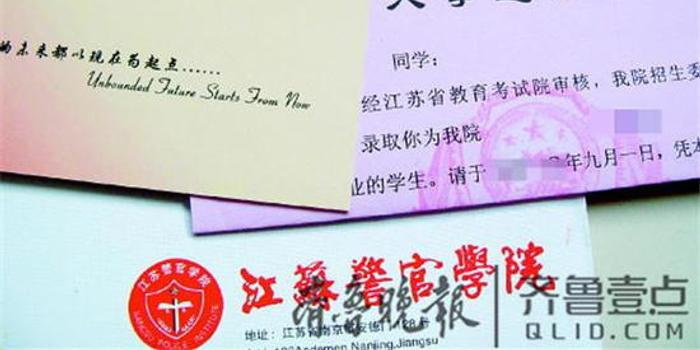 的未来都以现在为起点......
Unbounded Future Starts From Now
同学：
经江苏省教育考试院审核，我院招生委
录取你为我院
业的学生。请于
年九月一日，凭本
江苏警官学院
江蘇警官學院
JIANGSU POLICE INSTITUTE
地址：江苏省南京市安德门128号
Andemen Nanjing,Jiangsu
济鲁晚报
齐鲁壹点
QLID.COM